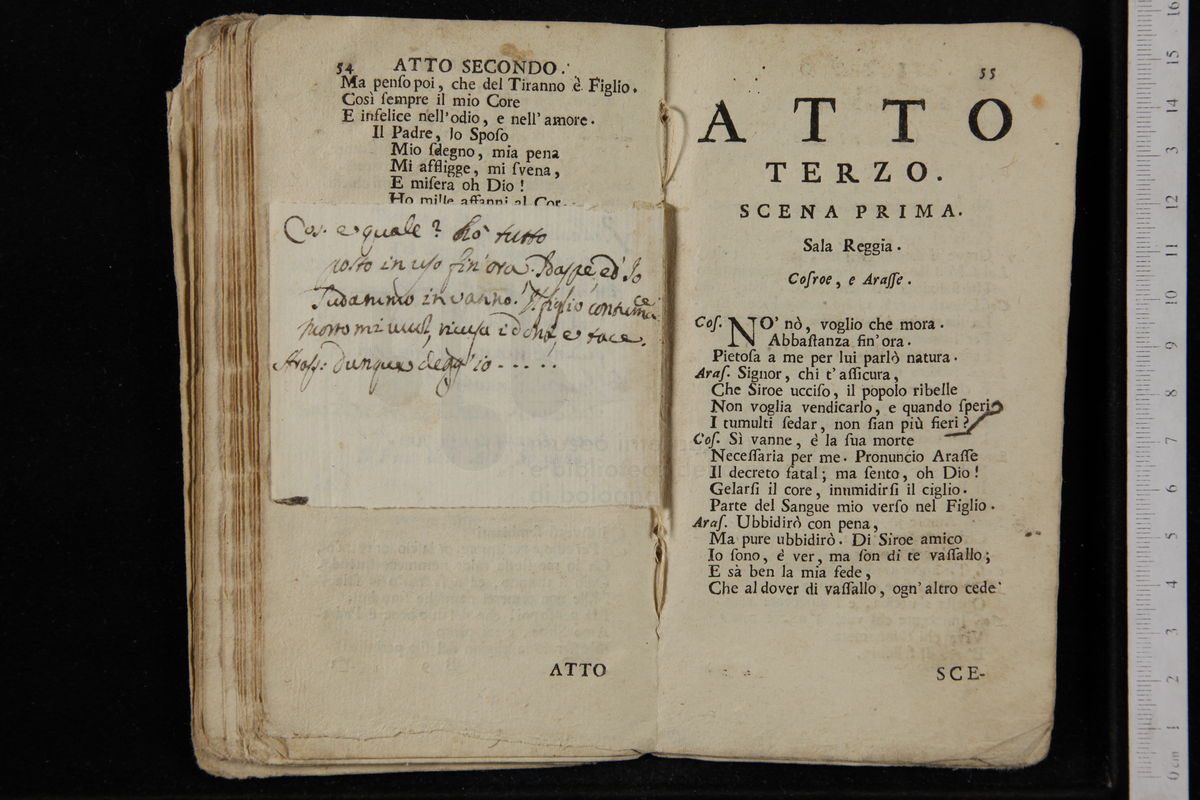 54 ATTO SECONDO.
Ma penſo poi, che del Tiranno è Figlio.
Così ſempre il mio Core
E infelice nell'odio, e nell'amore.
Il Padre, lo Spoſo
Mio ſdegno, mia pena
Mi affligge, mi ſvena,
E miſera oh Dio!
Ho mille affanni al Cor.
Cos. e quale? hò tutto
posto in uso fin'ora. Idaspe, ed Io
Sudammo in vanno. Il figlio contumace
morto mi vuol, ricusa i doni, e tace.
Aras. dunque degg'io . . . . . .
ATTO
55
ATTO
TERZO.
SCENA PRIMA.
Sala Reggia.
Coſroe, e Araſſe.
Coſ. NO' nò, voglio che mora.
Abbaſtanza fin'ora.
Pietoſa a me per lui parlò natura.
Araſ. Signor, chi t'aſſicura,
Che Siroe ucciſo, il popolo ribelle
Non voglia vendicarlo, e quando ſperi
I tumulti ſedar, non ſian più fieri?
Coſ. Sì vanne, è la ſua morte
Neceſſaria per me. Pronuncio Araſſe
Il decreto fatal; ma ſento, oh Dio!
Gelarſi il core, inumidirſi il ciglio.
Parte del Sangue mio verſo nel Figlio.
Araſ. Ubbidirò con pena,
Ma pure ubbidirò. Di Siroe amico
Io ſono, è ver, ma ſon di te vaſſallo;
E sà ben la mia fede,
Che al dover di vaſſallo, ogn'altro cede
SCE-